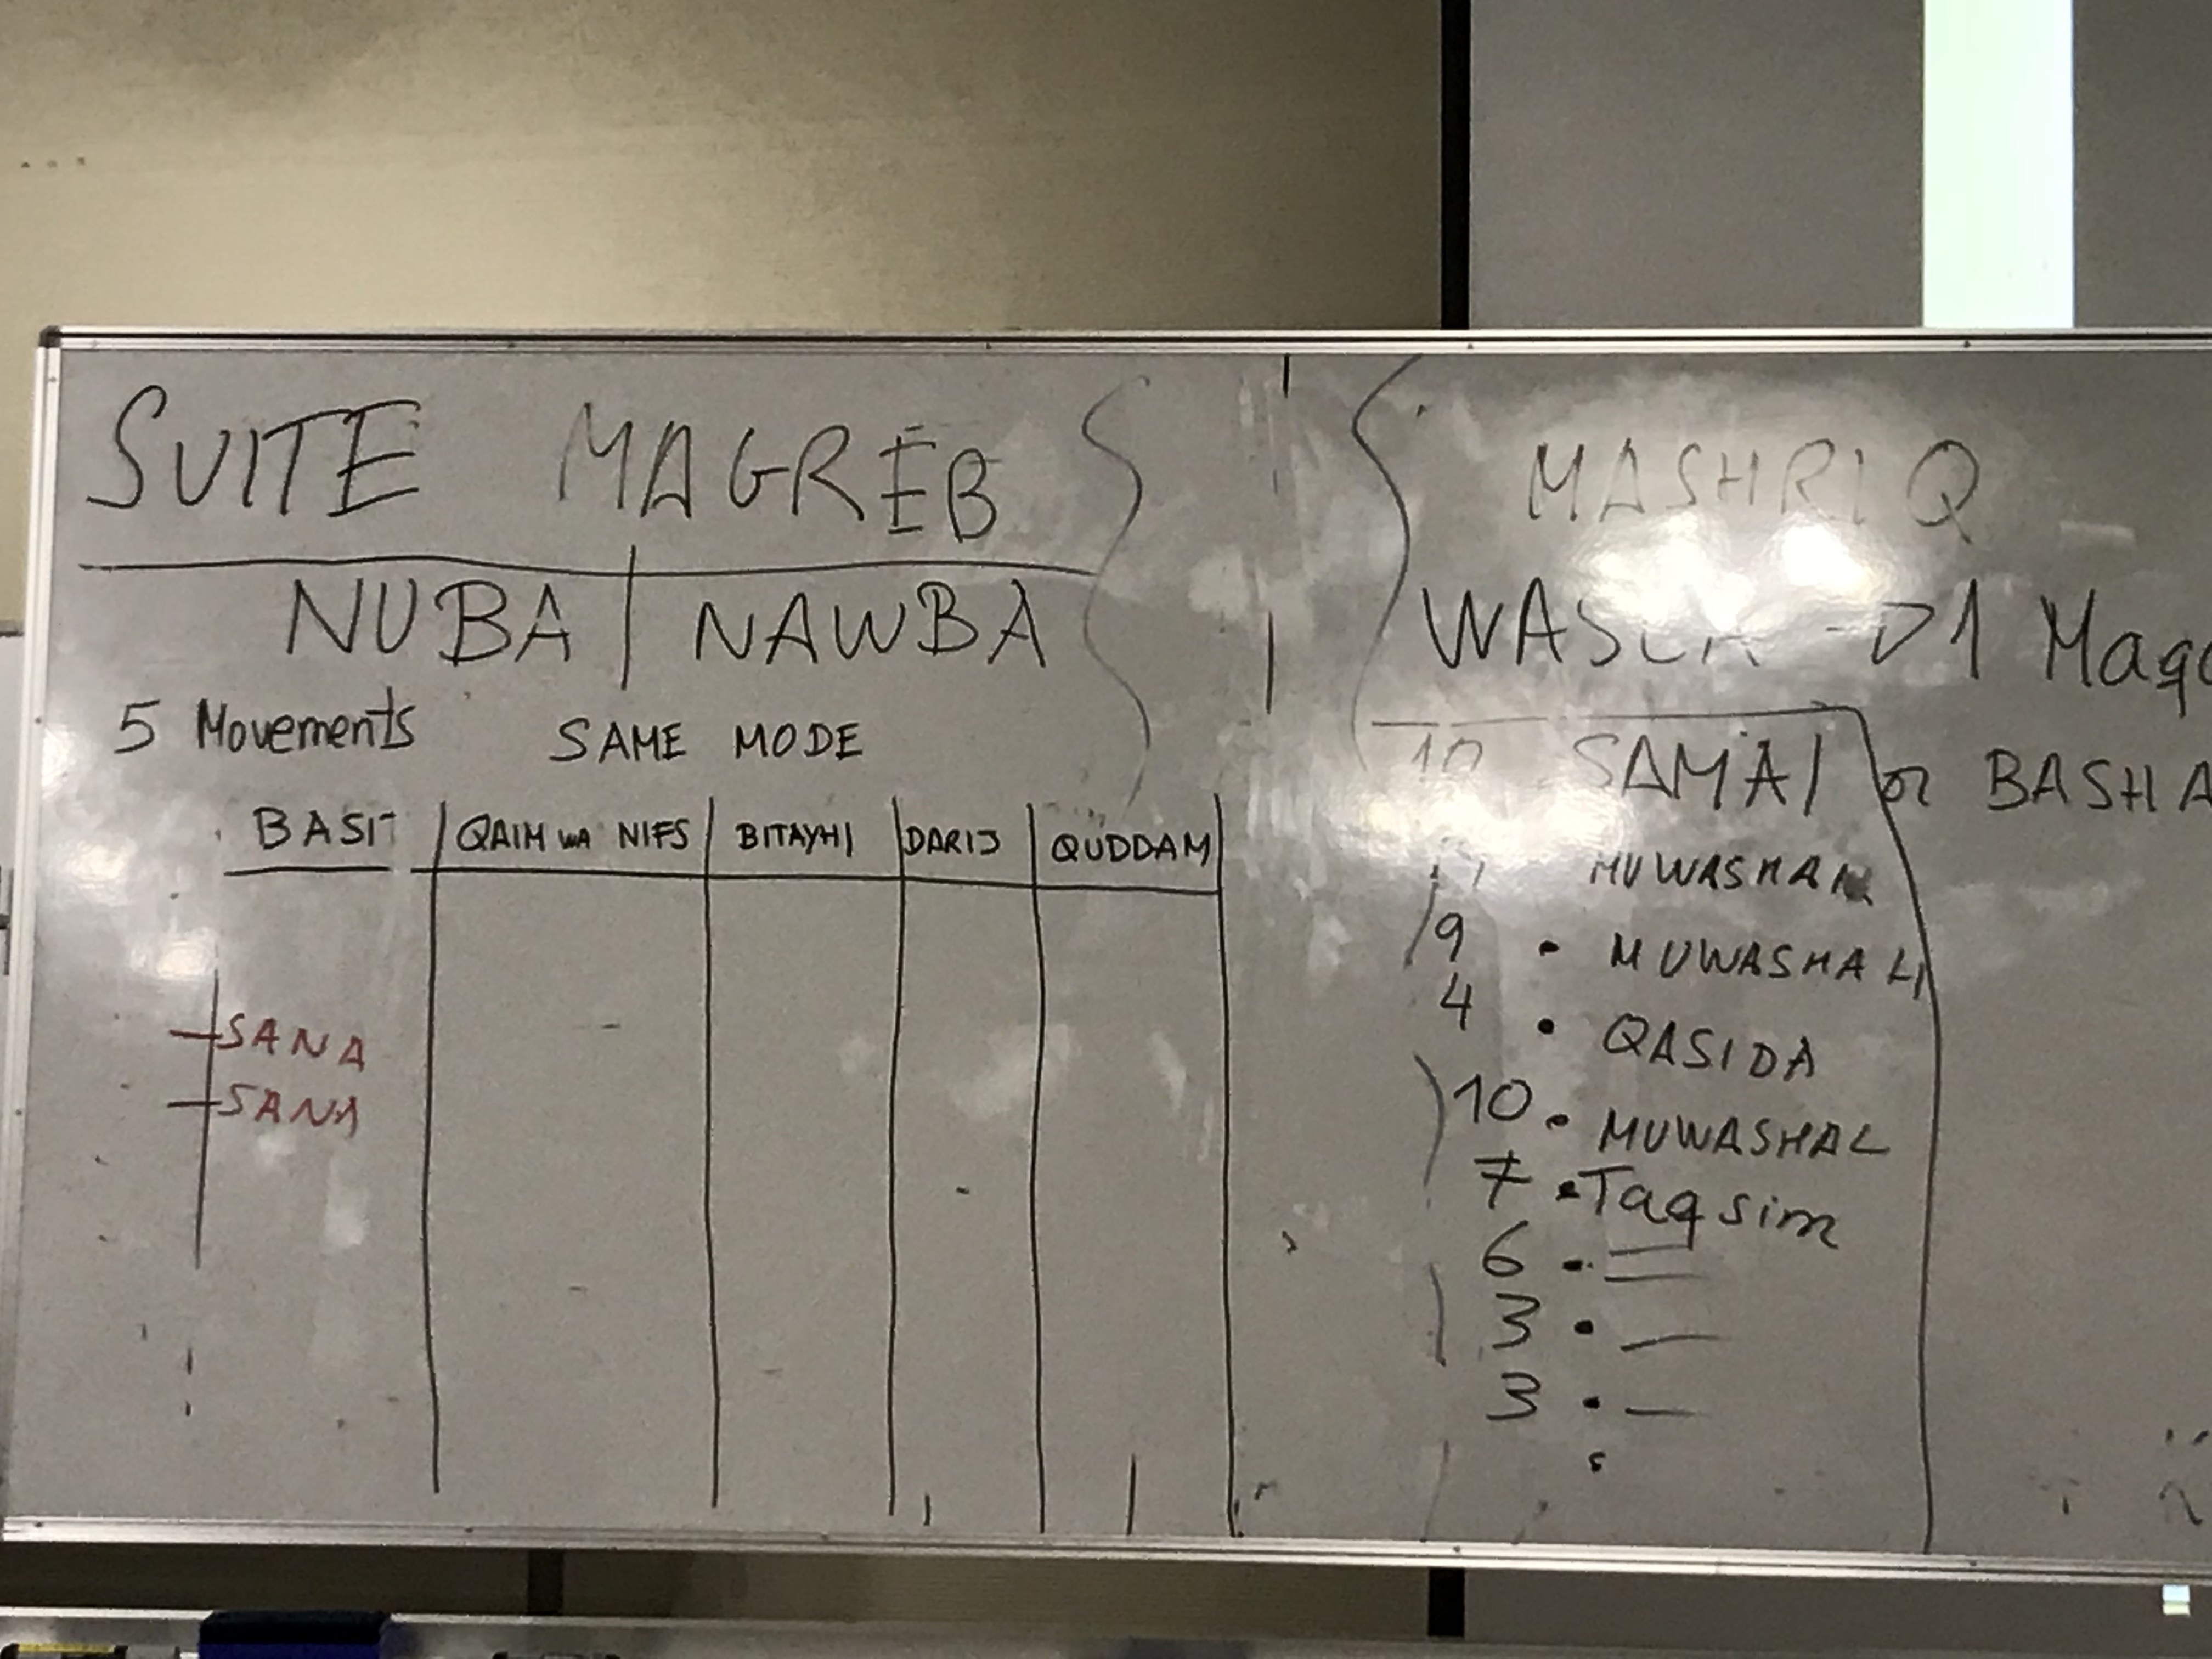 SUITE MAGREB
NUBA | NAWBA
5 Movements SAME MODE
BASIT QAIM WA NIFS BITAYHI DARIJ QUDDAM
SANA
SANA
MASHRIQ
WASLA → 1
10 SAMAI or
MUWASHAH
9 • MUWASHAH
4 • QASIDA
10 • MUWASHAL
7 • Taqsim
6 •
3 •
3 •